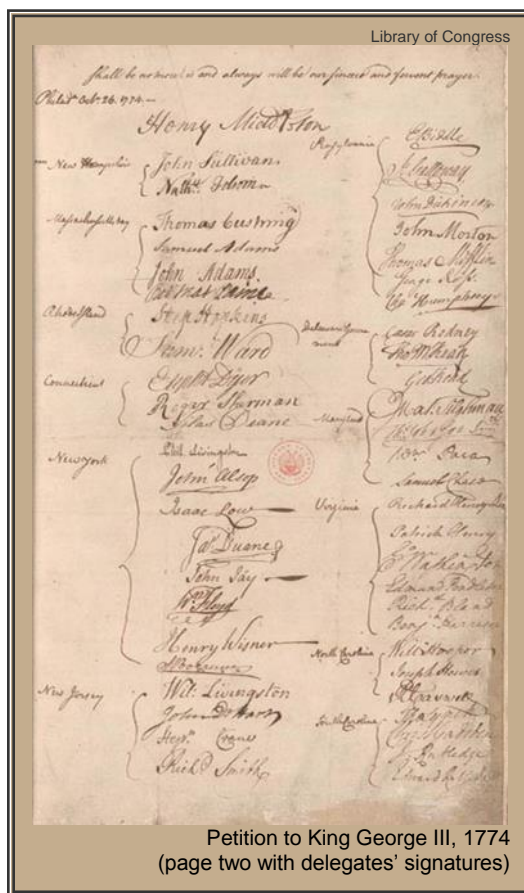 Library of Congress
shall be as most is and always will be our sincere and fervent prayer.
Philad.ᵃ Octʳ 26. 1774.—
Henry Middleton
New Hampshire
John Sullivan.
Nathˡ. Folsom
Massachusetts bay
Thomas Cushing
Samuel Adams
John Adams,
Robᵗ Treat Paine
Rhode Island
Step Hopkins
Samˡ. Ward
Connecticut
Elipht Dyer
Roger Sherman
Silas Deane
New york
Phil. Livingston
John Alsop
Isaac Low
Jaˢ. Duane
John Jay
Wᵐ Floyd
Henry Wisner
S: Boerum
New Jersey
Wil: Livingston
John D Hart
Stepⁿ. Crane
Richᵈ Smith
Pensylvania
E Biddle
J: Galloway
John Dickinson
John Morton
Thomas Mifflin
George Ross.
Chᵃ Humphreys
Delaware Government
Caesar Rodney
Thoˢ M:Kean
Geo: Read
Maryland
Mat. Tilghman
Thˢ Johnson Junʳ.
Wᵐ Paca
Samuel Chase
Virginia
Richard Henry Lee
Patrick Henry
Gᵒ Washington
Edmund Pendleton
Richᵈ Bland
Benjᵃ Harrison
North Carolina
Will Hooper
Joseph Hewes
R Caswell
South Carolina
Tho Lynch
Chris Gadsden
J Rutledge
Edward Rutledge
Petition to King George III, 1774
(page two with delegates’ signatures)